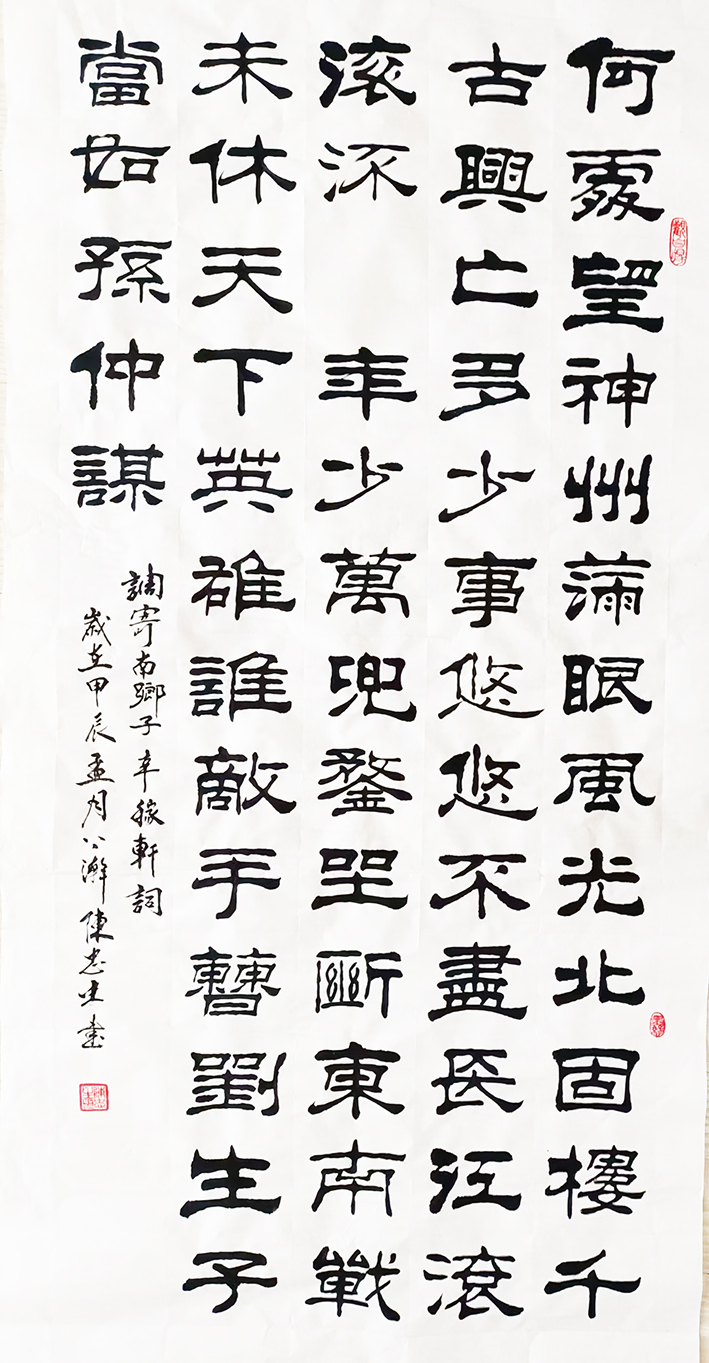 何處望神州滿眼風光北固樓千
古興亡多少事悠悠不盡長江滾
滚流 年少萬兜鍪坐斷東南戰
未休天下英雄誰敵手曹劉生子
當如孫仲謀
調寄南鄉子辛稼軒詞
歲在甲辰孟月八瀚陳忠生書